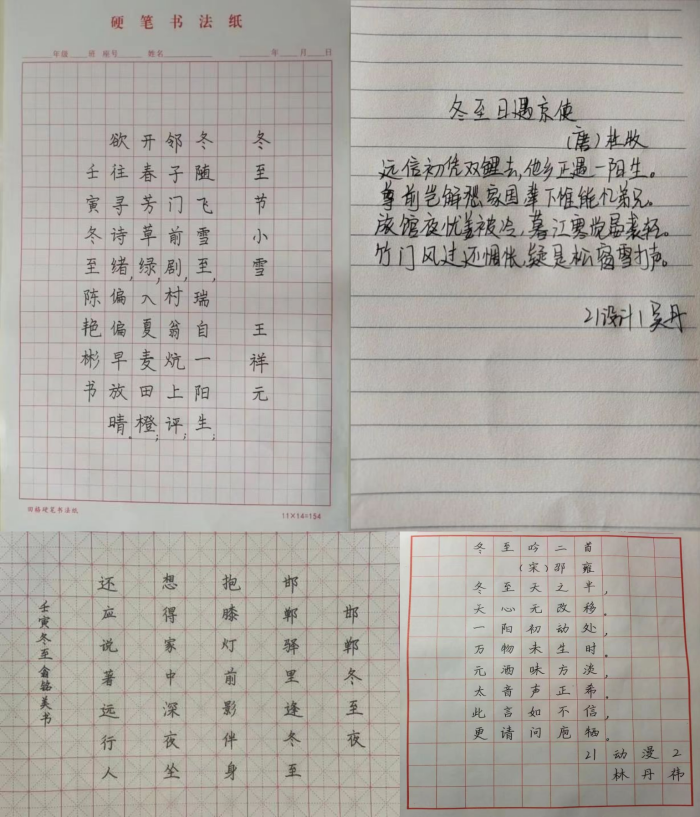 硬笔书法纸
年级 班 座号 姓名 年 月 日
冬至节小雪 王祥元
冬随飞雪至,瑞自一阳生;
邻子门前剧,村翁炕上评;
开春芳草绿,入夏麦田橙;
欲往寻诗绪,偏偏早放晴。
壬寅冬至陈艳彬书
田格硬笔书法纸
11×14=154
冬至日遇京使
(唐)杜牧
远信初凭双鲤去,他乡正遇一阳生。
尊前岂解愁家国 辇下谁能忆弟兄。
旅馆夜忧姜被冷,暮江寒觉晏裘轻。
竹门风过还惆怅,疑是松窗雪打声。
21设计1吴丹
邯郸冬至夜
邯郸驿里逢冬至
抱膝灯前影伴身
想得家中深夜坐
还应说著远行人
壬寅冬至俞铭美书
冬至吟二首
(宋)邵雍
冬至天之半,
天心元改移。
一阳初动处,
万物未生时。
元酒味方淡,
太音声正希。
此言如不信,
更请问庖牺。
21动漫2
林丹